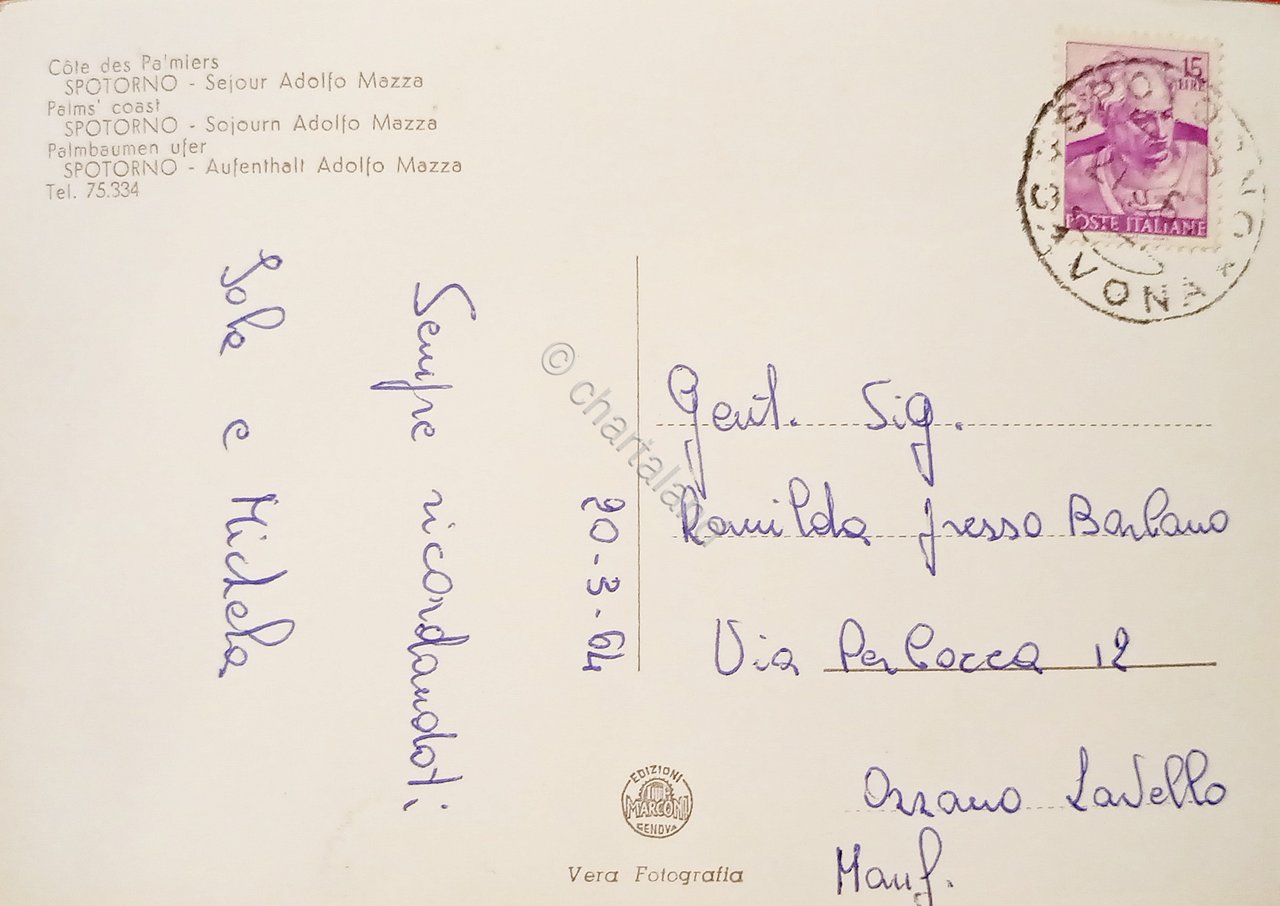 Côte des Pa'miers
SPOTORNO - Sejour Adolfo Mazza
Palms' coast
SPOTORNO - Sojourn Adolfo Mazza
Palmbaumen ufer
SPOTORNO - Aufenthalt Adolfo Mazza
Tel. 75.334
15
LIRE
POSTE ITALIANE
SPOTORNO
20-3-64
Sempre ricordandoti
Iole e Michela
© chartaland
Gent. Sig.
Romilda Fresso Barbano
Via 12
Ozzano
Monf.
EDIZIONI
MARCONI
GENOVA
Vera Fotografia